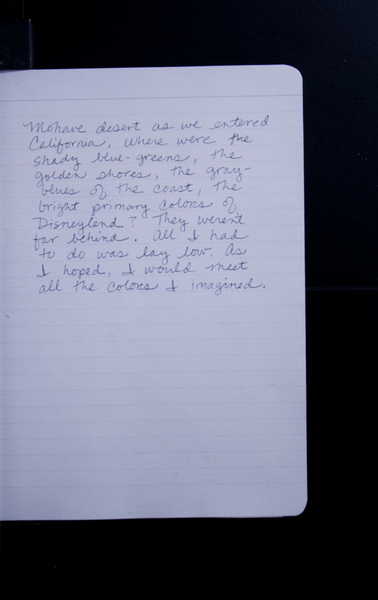 Mohave desert as we entered
California, where were the
shady blue-greens, the
golden shores, the gray-
blues of the coast, the
bright primary colors of
Disneyland? They weren't
far behind. All I had
to do was lay low. As
I hoped, I would meet
all the colors I imagined.